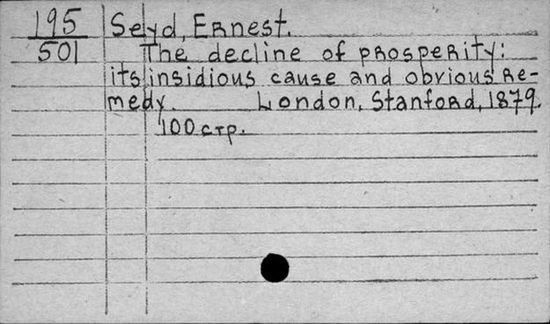 195 Seyd, Ernest.
501 The decline of prosperity:
its insidious cause and obvious re-
medy. London, Stanford, 1879.
100 стр.